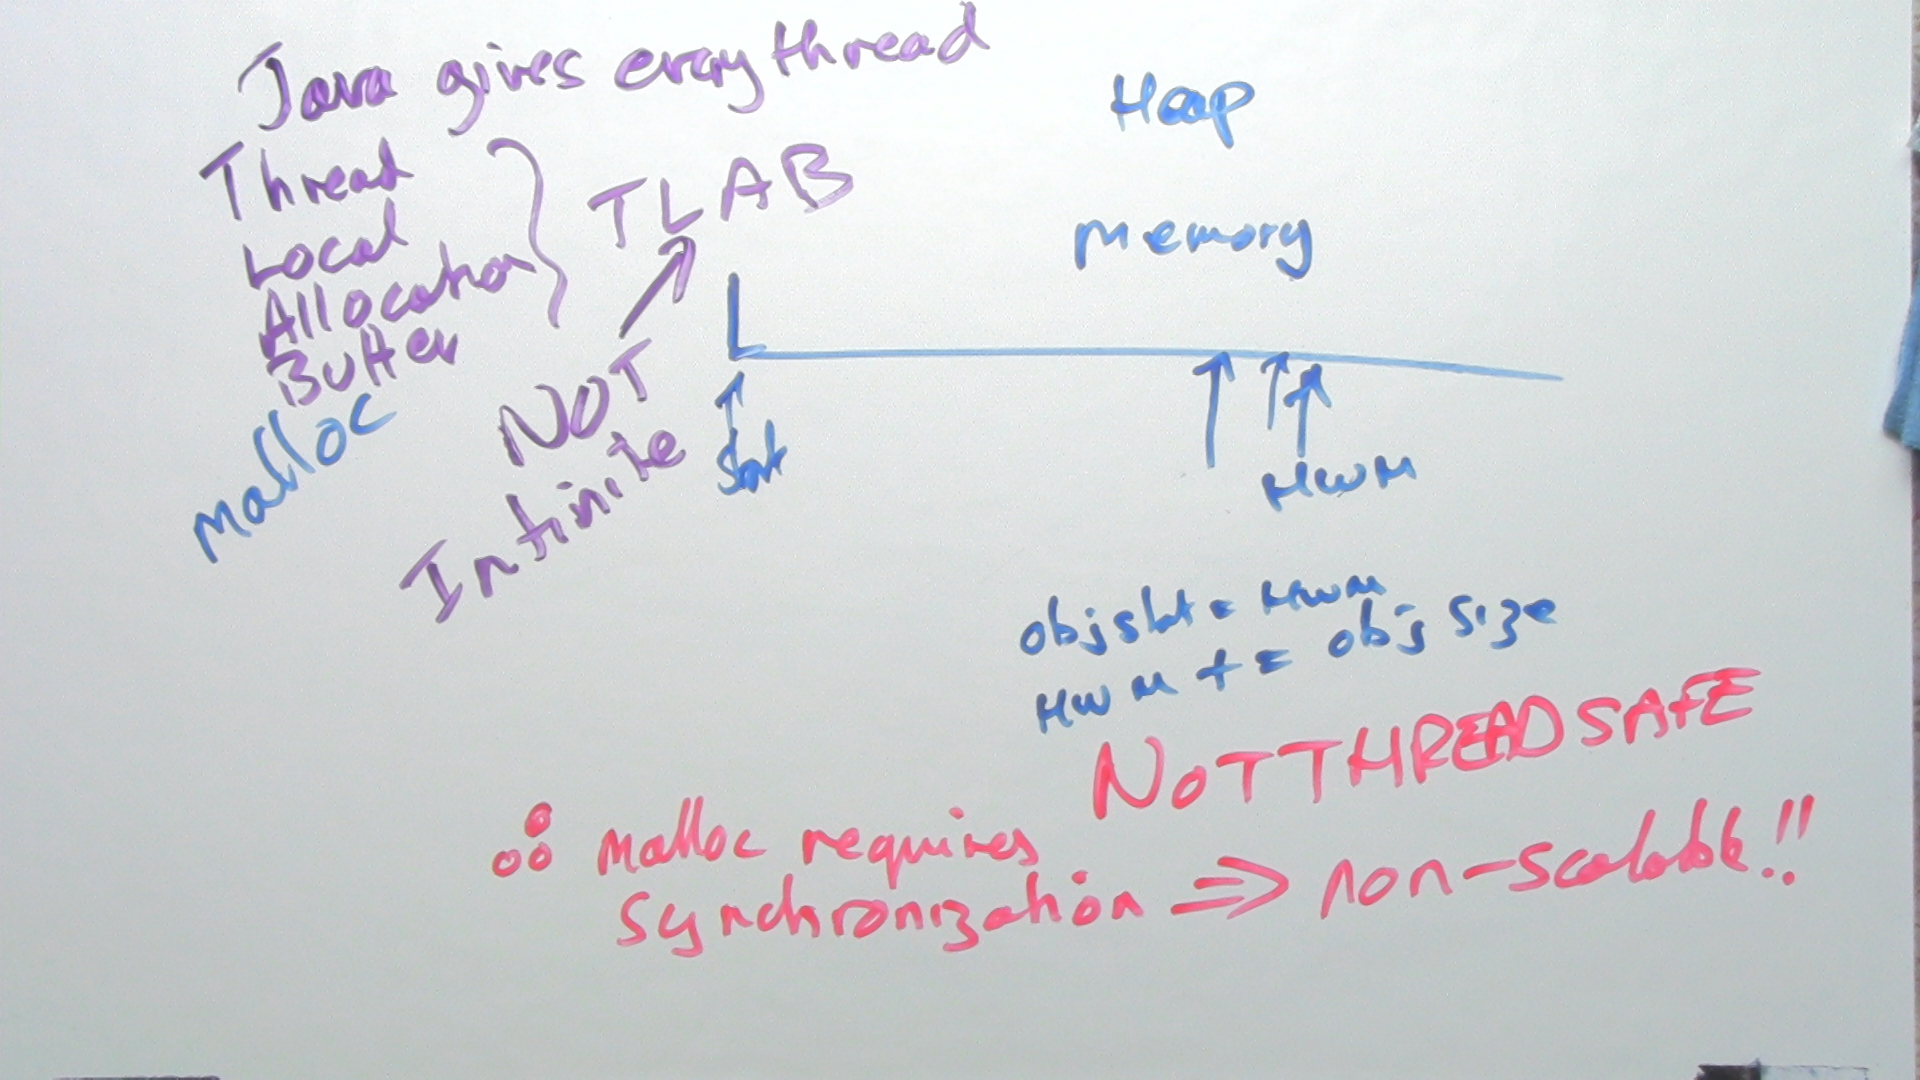 Java gives every thread
Thread
Local
Allocation
Buffer
TLAB
NOT
Infinite
malloc
Heap
Memory
Start
HWM
obj start = HWM
HWM += obj size
NOT THREAD SAFE
∴ malloc requires
synchronization => non-scalable!!